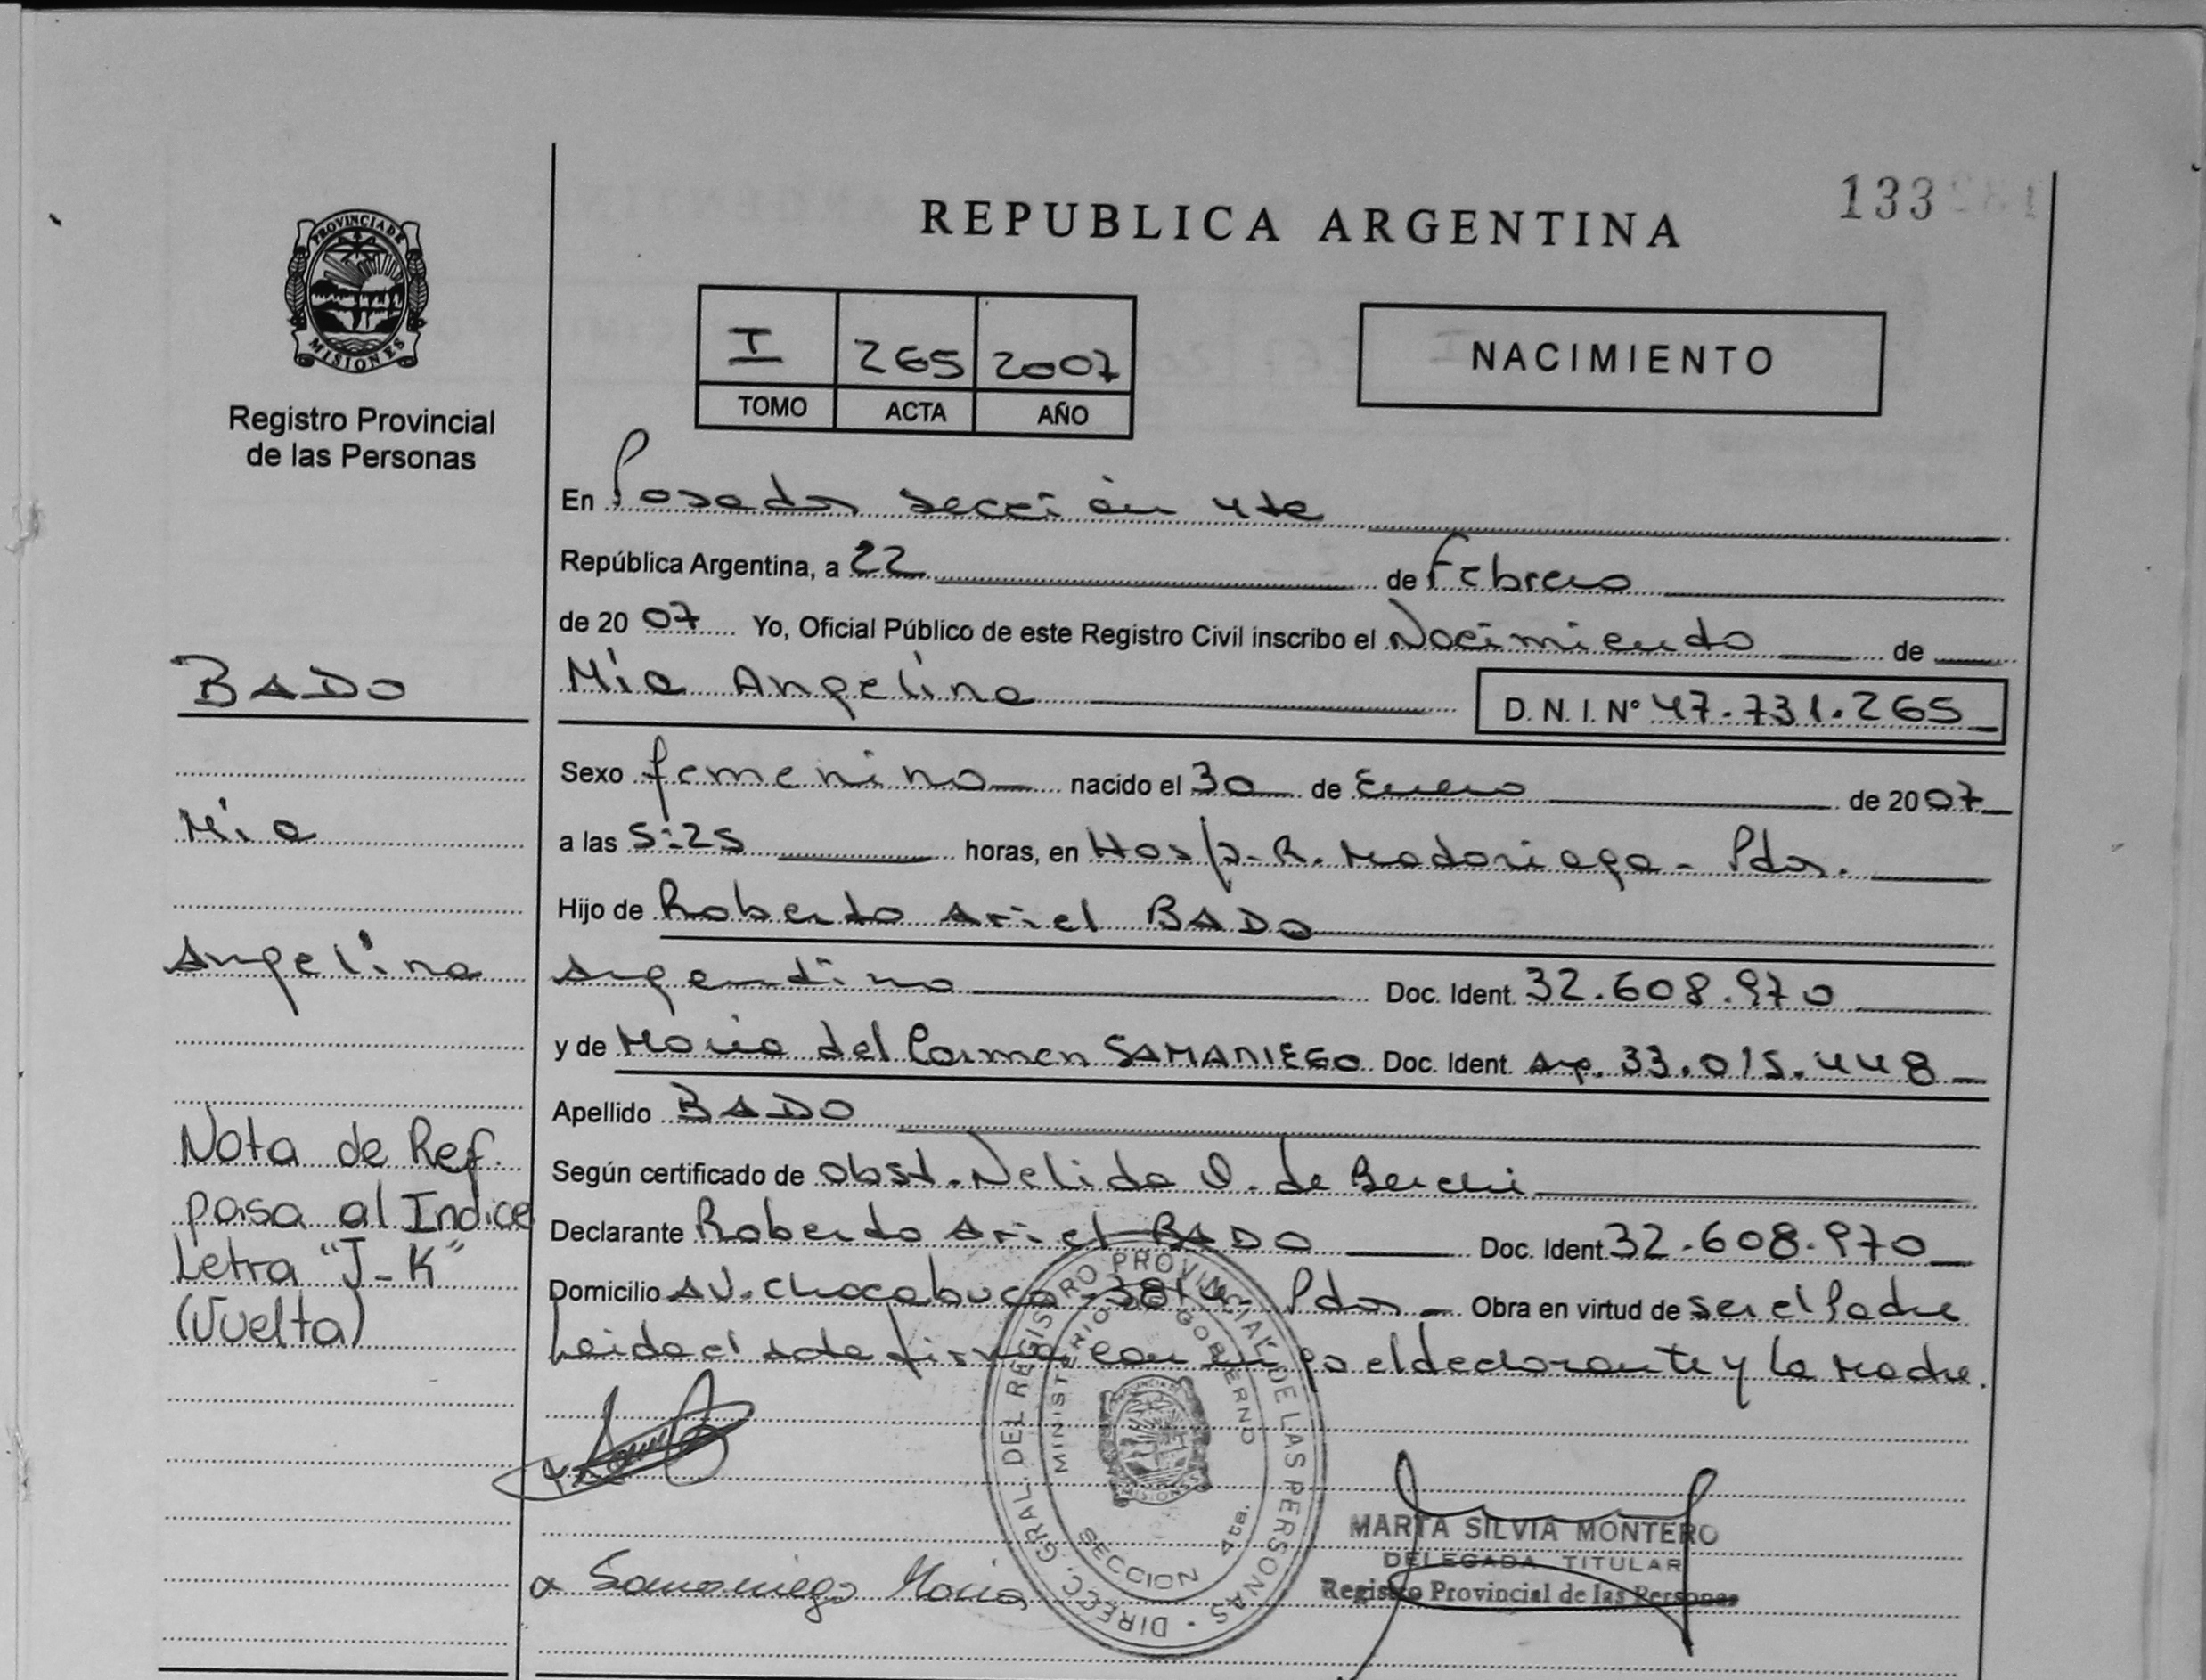 133
REPUBLICA ARGENTINA
PROVINCIA DE
MISIONES
Registro Provincial
de las Personas
I 265 2007
TOMO ACTA AÑO
NACIMIENTO
En Posadas sección 4ta
República Argentina, a 22 de Febrero
de 2007 Yo, Oficial Público de este Registro Civil inscribo el Nacimiento de
BADO
Mía Angelina D. N. I. N° 47.731.265
Sexo femenino nacido el 30 de Enero de 2007
Mía
a las 5:25 horas, en Hosp. R. Madariaga - Pdas.
Hijo de Roberto Ariel BADO
Angelina
Argentino Doc. Ident. 32.608.970
y de María del Carmen SAMANIEGO Doc. Ident. Arg. 33.015.448
Apellido BADO
Nota de Ref.
pasa al Indice
Letra "J-K"
(Vuelta)
Según certificado de Obst. Nelida O. de
Declarante Roberto Ariel BADO Doc. Ident. 32.608.970
Domicilio AV. Chacabuco 3814 - Pdas - Obra en virtud de ser el Padre
Leida el acta firman conmigo el declarante y la Madre.
DIRECC. GRAL. DEL REGISTRO PROVINCIAL DE LAS PERSONAS
MINISTERIO DE GOBERNO
PROVINCIA DE
MISIONES
SECCION 4ta.
Samaniego Maria
MARTA SILVIA MONTERO
DELEGADA TITULAR
Registro Provincial de las Personas